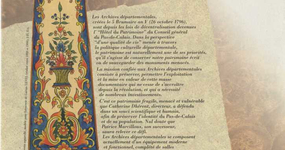 Les Archives départementales,
créées le 5 Brumaire an V (26 octobre 1796),
sont depuis les lois de décentralisation devenues
l'"Hôtel du Patrimoine" du Conseil général
du Pas-de-Calais. Dans la perspective
d'"une qualité de vie" menée à travers
la politique culturelle départementale,
le patrimoine est naturellement une de ses priorités,
qu'il s'agisse de conserver notre patrimoine écrit
ou de sauvegarder des monuments menacés.
La mission confiée aux Archives départementales
consiste à préserver, permettre l'exploitation
et la mise en valeur de cette masse
documentaire qui ne cesse de s'accroître
depuis la révolution, et qui a nécessité
de nombreux investissements.
C'est ce patrimoine fragile, menacé et vulnérable
que Catherine Dhérent, directrice, a défendu
dans un souci scientifique et humain,
afin de préserver l'identité du Pas-de-Calais
et de sa population. Nul doute que
Patrice Marcilloux, son successeur,
saura relever ce défi.
Les Archives départementales se composent
actuellement d'un équipement moderne
et fonctionnel, complété de salles